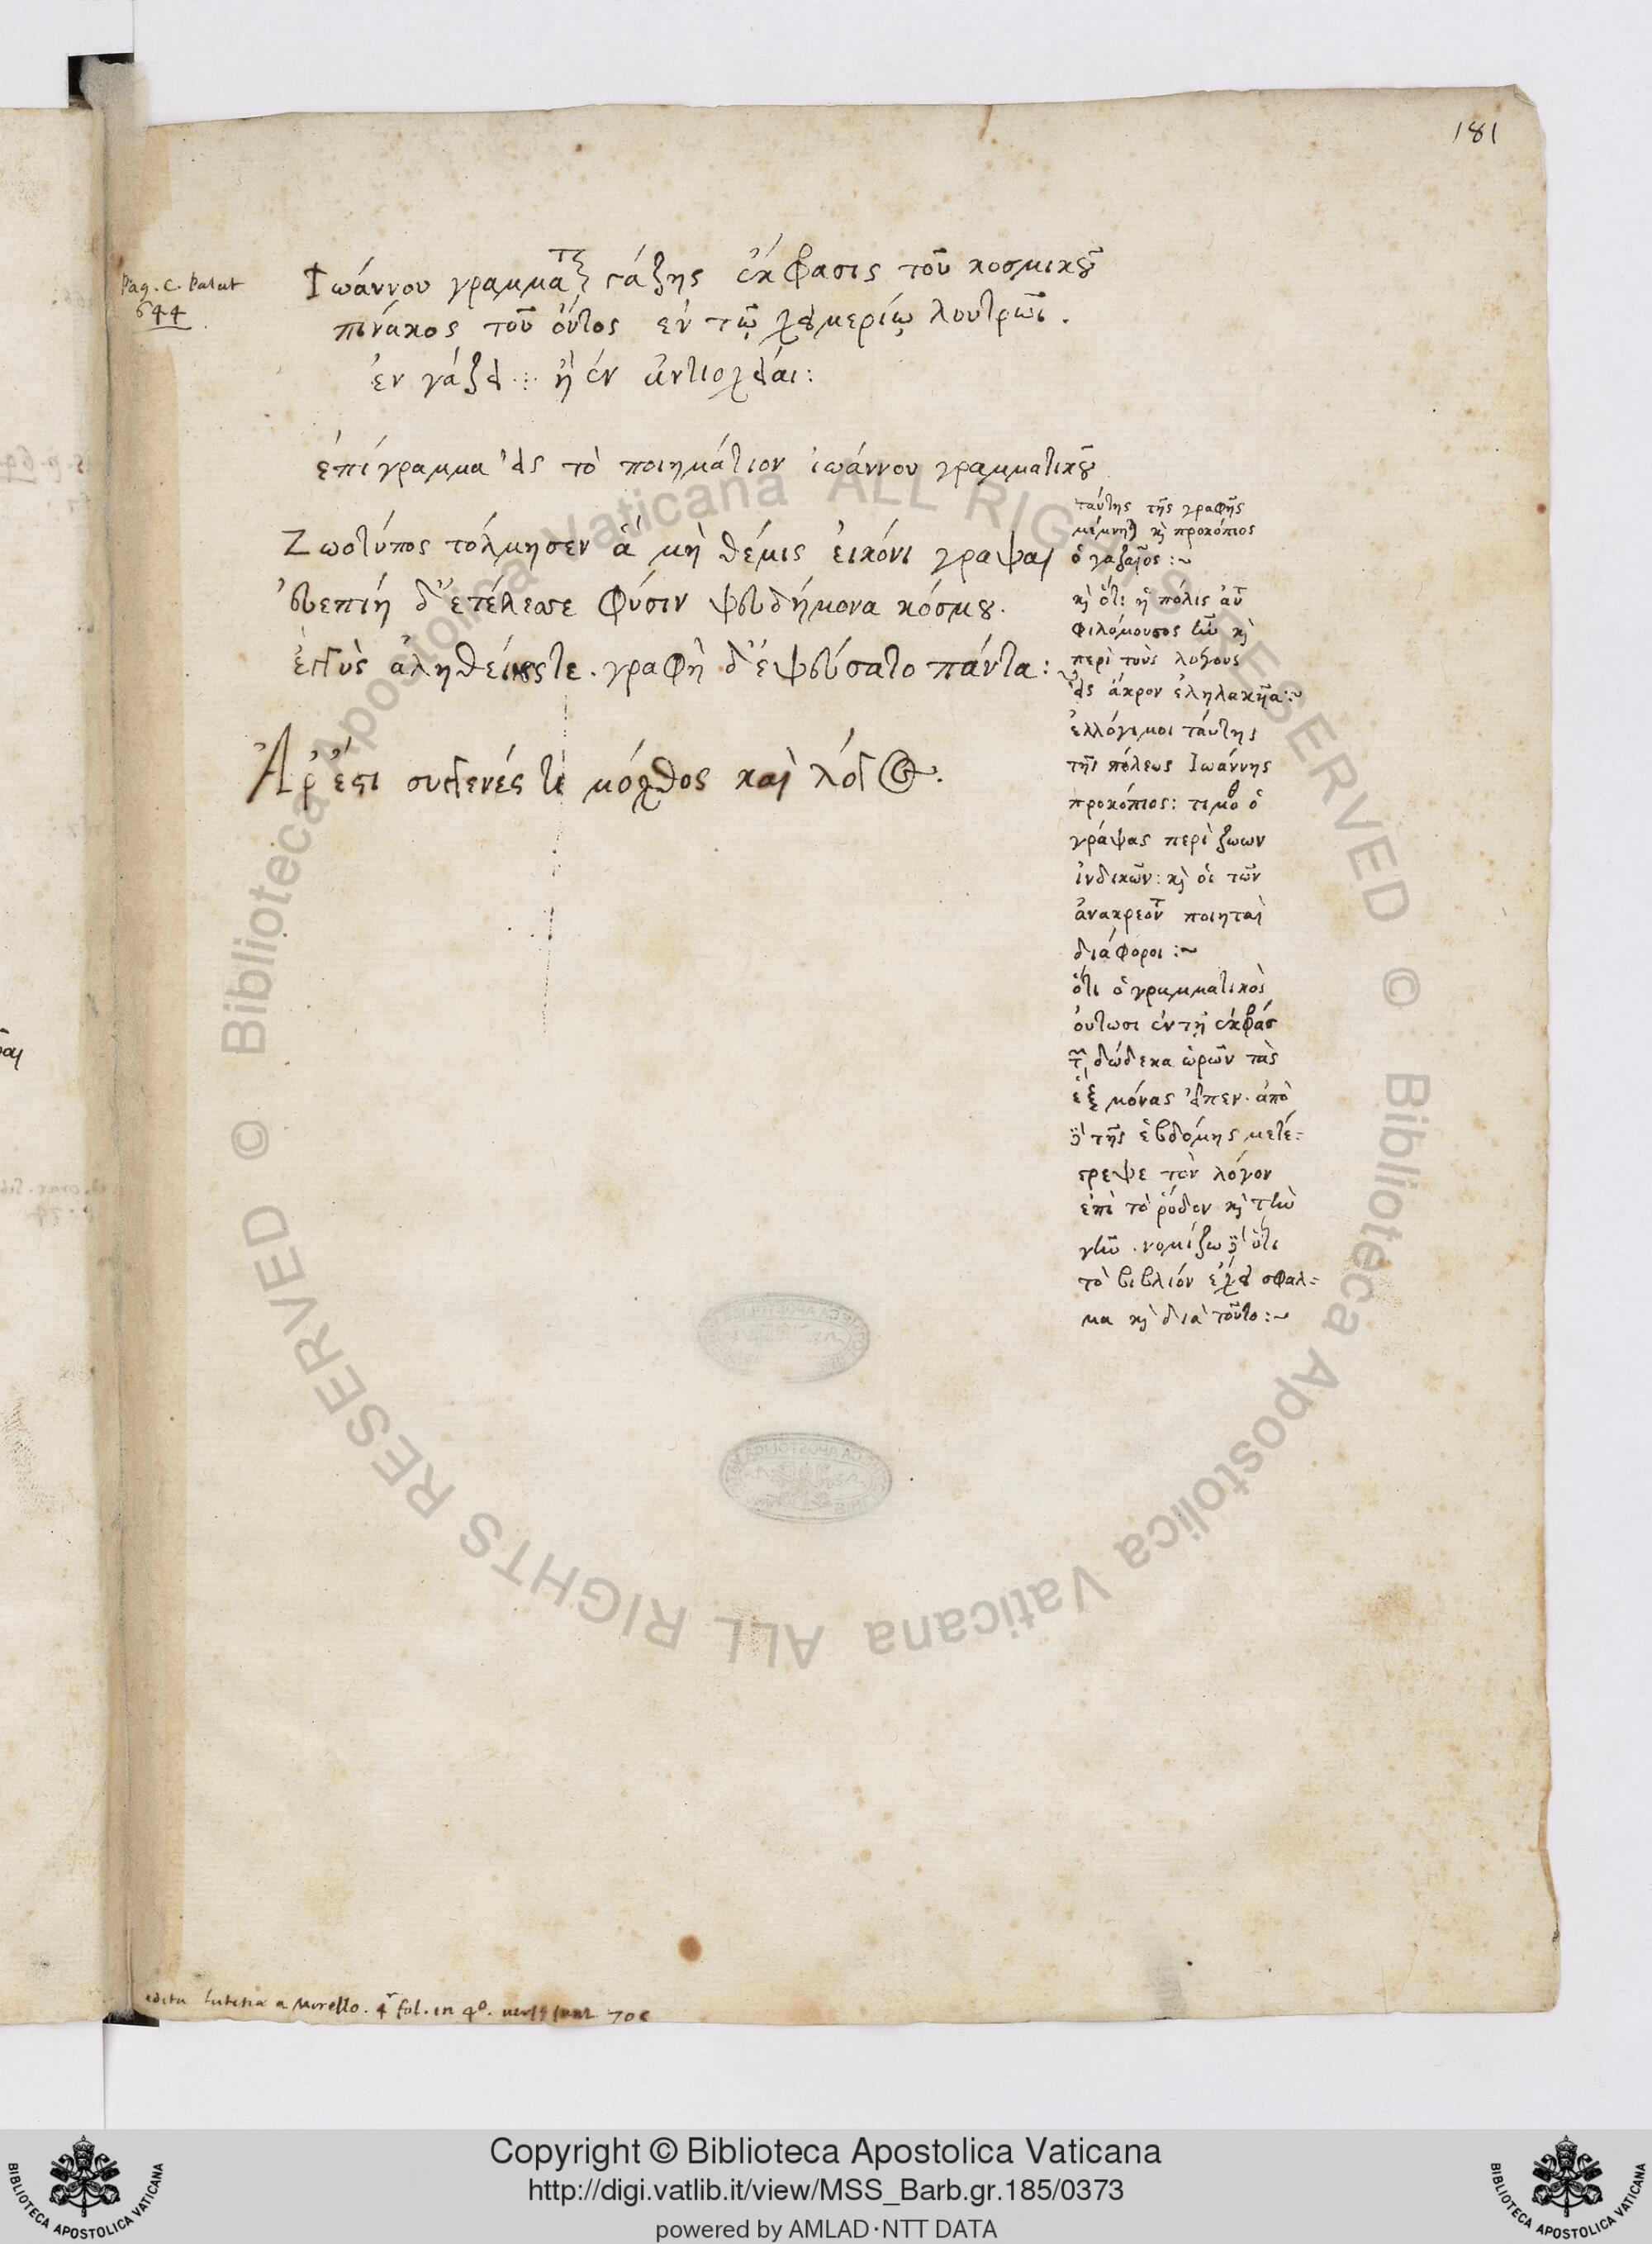 181
Pag. C. Palat
644
Ἰωάννου γραμματ γάζης ἔκφρασις τοῦ κοσμικοῦ
πίνακος τοῦ ὄντος ἐν τῷ χειμερίῳ λουτρῶι.
ἐν γάζει ἢ ἐν ἀντιοχείαι:
ἐπίγραμμα εἰς τὸ ποιημάτιον ἰωάννου γραμματικοῦ
Ζωοτύπος τόλμησεν ἃ μὴ θέμις εἰκόνι γραψαι
εὐεπίη δ' ἐτέλεσσε φύσιν ψευδήμονα κόσμου.
ἐγγὺς ἀληθείης τε. γραφὴ δ' ἐψεύσατο πάντα:
Ἆρ' ἔστι συγγενές τι μόχθος καὶ λόγος.
ταύτης τῆς γραφῆς
μέμνηται καὶ προκόπιος
ὁ γαζαῖος:~
καὶ ὅτι ἡ πόλις αὕτ
φιλόμουσος ἦν καὶ
περὶ τοὺς λόγους
εἰς ἄκρον ἐληλακυῖα:~
ἐλλόγιμοι ταύτης
τῆς πόλεως Ἰωάννης
προκόπιος: τιμόθ ὁ
γράψας περὶ ζώων
ἰνδικῶν: καὶ οἱ τῶν
ἀνακρεοντ ποιηταὶ
διάφοροι:~
ὅτι ὁ γραμματικὸς
οὕτωσι ἐν τῇ ἐκφράσ
τῶν δώδεκα ὡρῶν τὰς
ἓξ μόνας εἶπεν. ἀπὸ
δὲ τῆς ἑβδόμης μετέ=
στρεψε τὸν λόγον
ἐπὶ τὸ ῥόδον καὶ τὴν
γῆν. νομίζω δὲ ὅτι
τὸ βιβλίον ἔχει σφαλ=
μα καὶ διὰ τοῦτο:~
edita Lutetia a Morello. 4r fol. in 4o. 706
Copyright © Biblioteca Apostolica Vaticana
http://digi.vatlib.it/view/MSS_Barb.gr.185/0373
powered by AMLAD·NTT DATA
BIBLIOTECA APOSTOLICA VATICANA
BIBLIOTECA APOSTOLICA VATICANA
© Biblioteca Apostolica Vaticana ALL RIGHTS RESERVED © Biblioteca Apostolica Vaticana ALL RIGHTS RESERVED